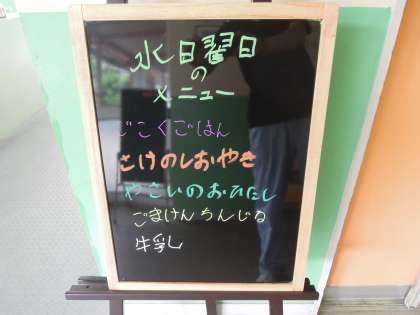 水日翟日
の
メニュー
ごこくごはん
さけのしおやき
やさいのおひたし
ごまけんちんじる
牛乳